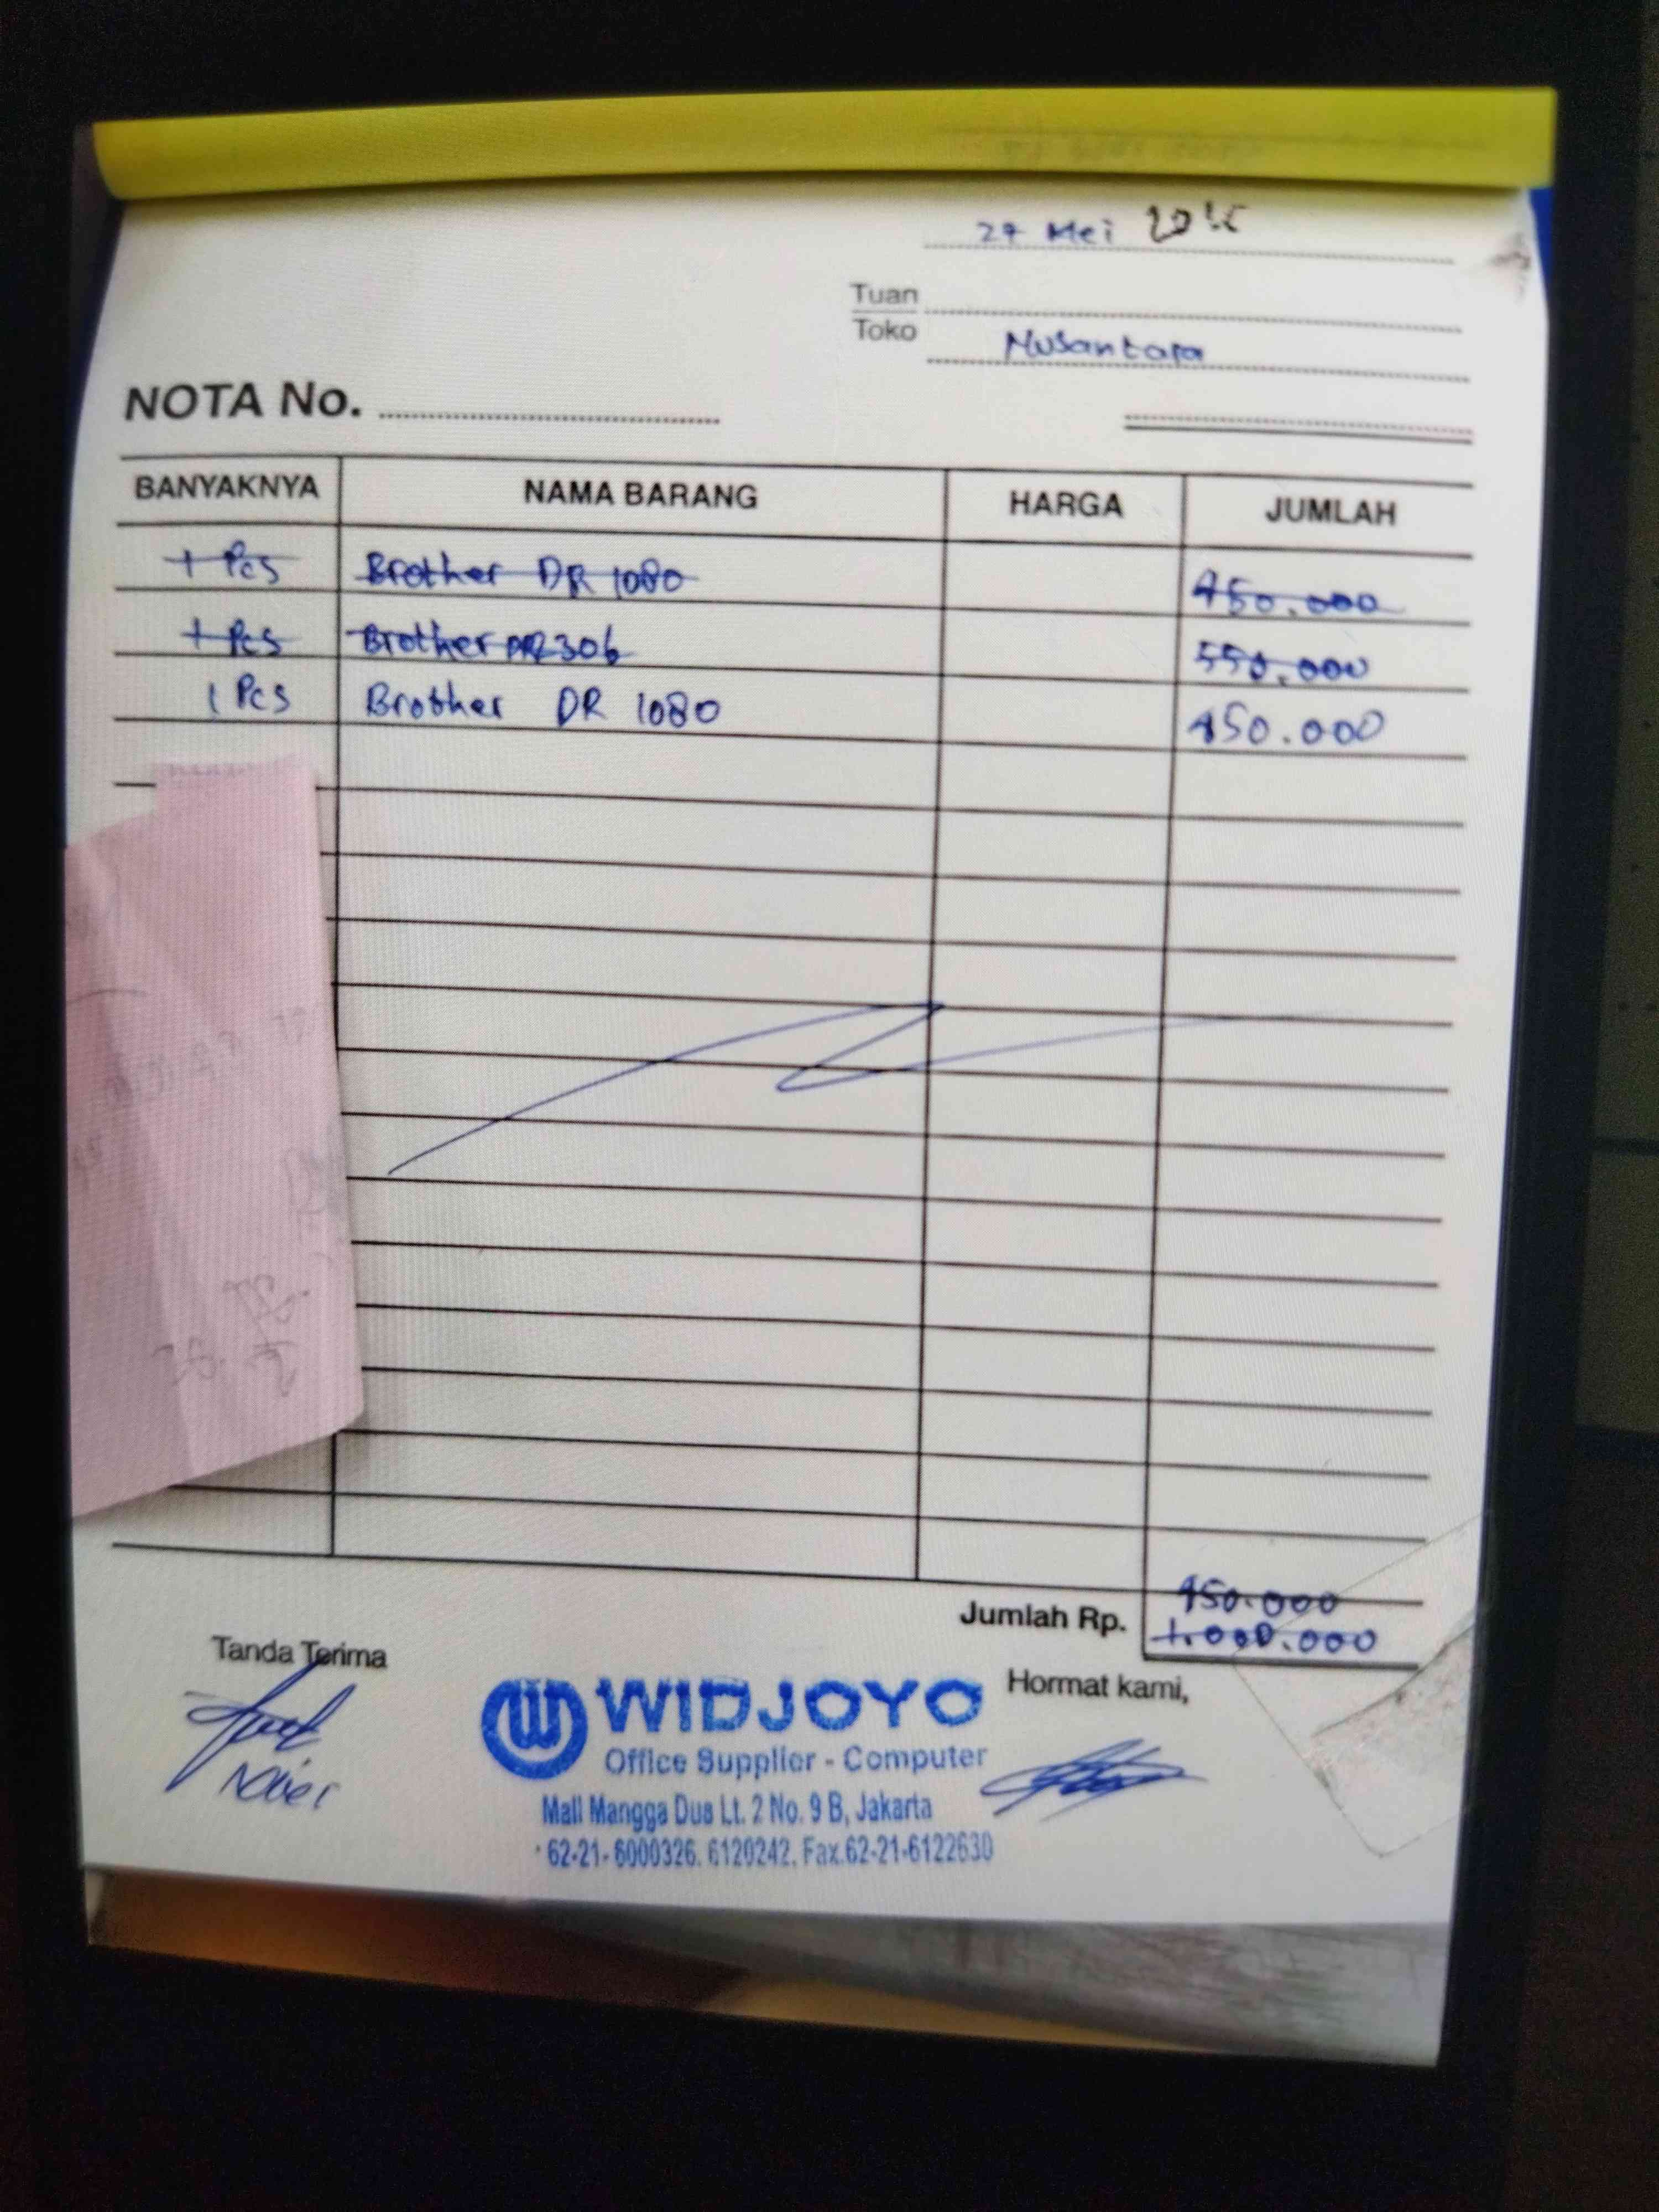 27 Mei
Tuan
Toko Nusantara
NOTA No.
BANYAKNYA NAMA BARANG HARGA JUMLAH
1 Pcs Brother DR 1080 450.000
1 Pcs Brother 550.000
1 Pcs Brother DR 1080 450.000
Jumlah Rp. 450.000
1.000.000
Tanda Terima
Hormat kami,
WIDJOYO
Office Supplier - Computer
Mall Mangga Dua Lt. 2 No. 9 B, Jakarta
62-21-6000326, 6120242, Fax.62-21-6122630